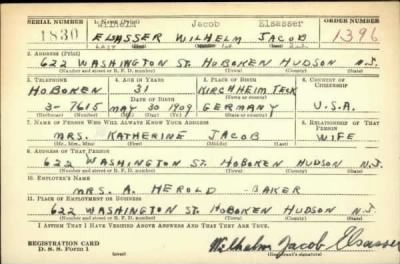 SERIAL NUMBER 1. NAME (Print) ORDER NUMBER
Wilhelm Jacob Elsasser
1830 ELSASSER WILHELM JACOB 1396
2. ADDRESS (Print)
622 WASHINGTON ST. HOBOKEN HUDSON N.J.
(Number and street or R. F. D. number) (Town) (County) (State)
3. TELEPHONE 4. AGE IN YEARS 5. PLACE OF BIRTH 6. COUNTRY OF CITIZENSHIP
HOBOKEN 31 KIRCHHEIM TECK
DATE OF BIRTH
3-7615 MAY 30 1909 GERMANY U.S.A.
7. NAME OF PERSON WHO WILL ALWAYS KNOW YOUR ADDRESS 8. RELATIONSHIP OF THAT PERSON
MRS. KATHERINE JACOB WIFE
(Mr., Mrs., Miss) (First) (Middle) (Last)
9. ADDRESS OF THAT PERSON
622 WASHINGTON ST. HOBOKEN HUDSON N.J.
(Number and street or R. F. D. number) (Town) (County) (State)
10. EMPLOYER'S NAME
MRS. A. HEROLD BAKER
11. PLACE OF EMPLOYMENT OR BUSINESS
622 WASHINGTON ST. HOBOKEN HUDSON N.J.
(Number and street or R. F. D. number) (Town) (County) (State)
I AFFIRM THAT I HAVE VERIFIED ABOVE ANSWERS AND THAT THEY ARE TRUE.
REGISTRATION CARD
D. S. S. Form 1 (over) Wilhelm Jacob Elsasser
(Registrant's signature)